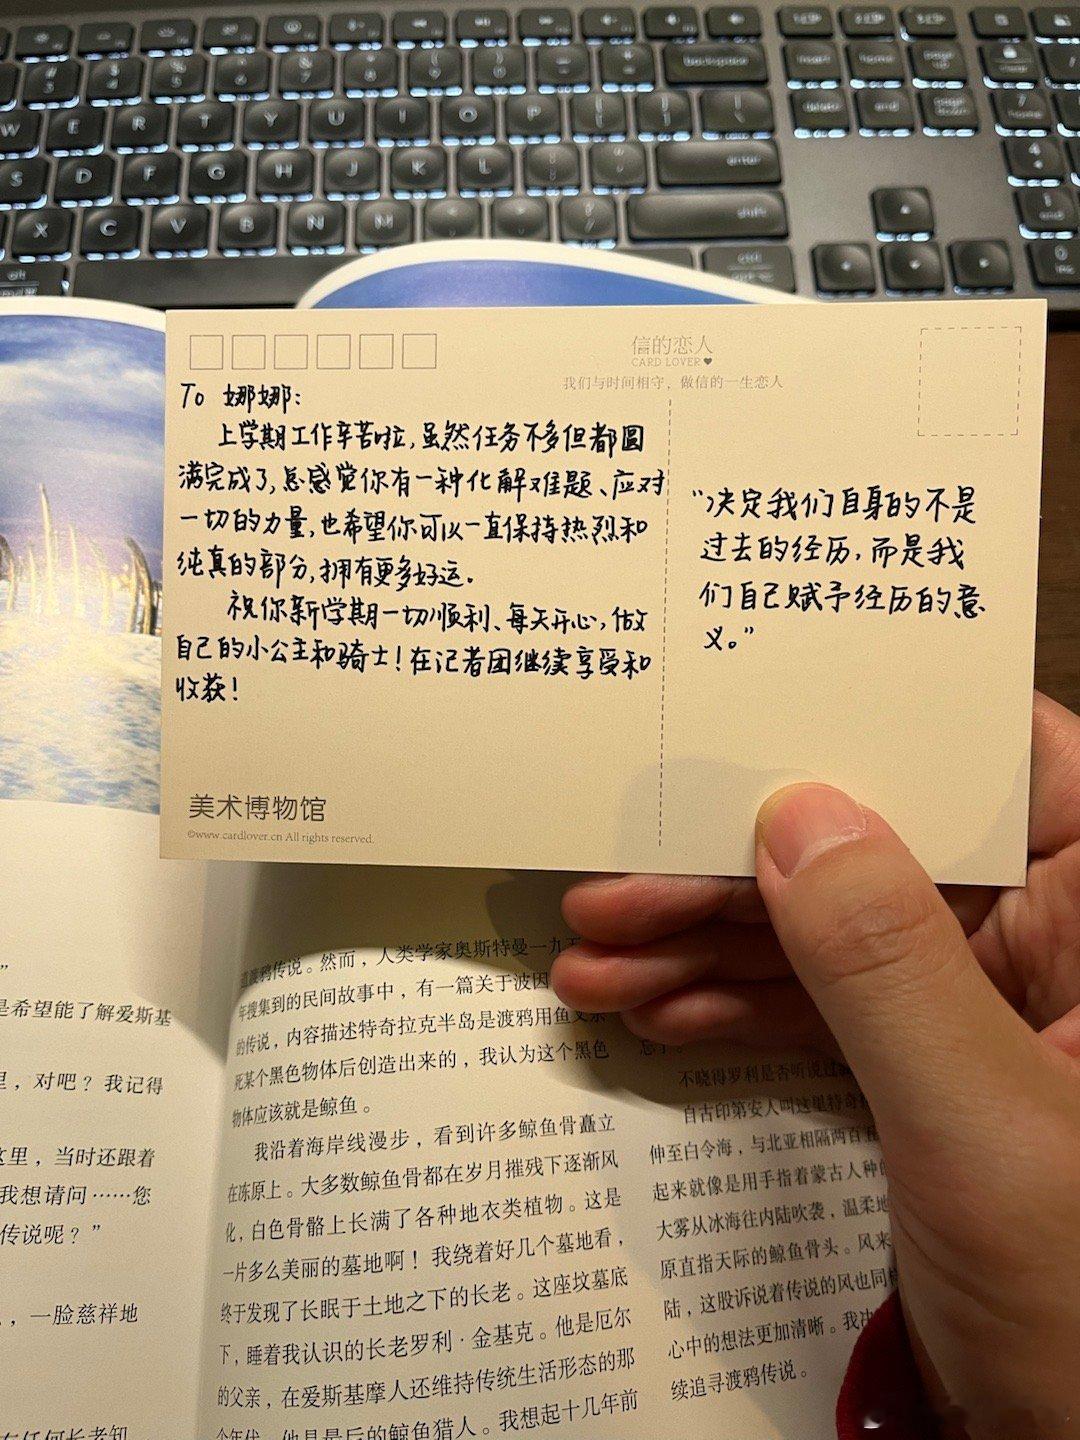 信的恋人
CARD LOVER
我们与时间相守，做信的一生恋人
To 娜娜：
上学期工作辛苦啦，虽然任务不多但都圆
满完成了，总感觉你有一种化解难题、应对
一切的力量，也希望你可以一直保持热烈和
纯真的部分，拥有更多好运。
祝你新学期一切顺利、每天开心，做
自己的小公主和骑士！在记者团继续享受和
收获！
“决定我们自身的不是
过去的经历，而是我
们自己赋予经历的意
义。”
美术博物馆
©www.cardlover.cn All rights reserved.
”
是希望能了解爱斯基
里，对吧？我记得
这里，当时还跟着
我想请问……您
传说呢？”
，一脸慈祥地
渡鸦传说。然而，人类学家奥斯特曼一九五
年搜集到的民间故事中，有一篇关于波因
的传说，内容描述特奇拉克半岛是渡鸦用鱼叉
死某个黑色物体后创造出来的，我认为这个黑色
物体应该就是鲸鱼。
我沿着海岸线漫步，看到许多鲸鱼骨矗立
在冻原上。大多数鲸鱼骨都在岁月摧残下逐渐风
化，白色骨骼上长满了各种地衣类植物。这是
一片多么美丽的墓地啊！我绕着好几个墓地看，
终于发现了长眠于土地之下的长老。这座坟墓底
下，睡着我认识的长老罗利·金基克。他是厄尔
的父亲，在爱斯基摩人还维持传统生活形态的那
个年代，他是最后的鲸鱼猎人。我想起十几年前
不晓得罗利是否听说过
自古印第安人叫这里特奇
伸至白令海，与北亚相隔两百
起来就像是用手指着蒙古人种的
大雾从冰海往内陆吹袭，温柔地
原直指天际的鲸鱼骨头。风来
陆，这股诉说着传说的风也同样
心中的想法更加清晰。我决
续追寻渡鸦传说。
backspace
insert
home
delete
end
enter
shift
W E R T Y U I O P
S D F G H J K L
X C V B N M